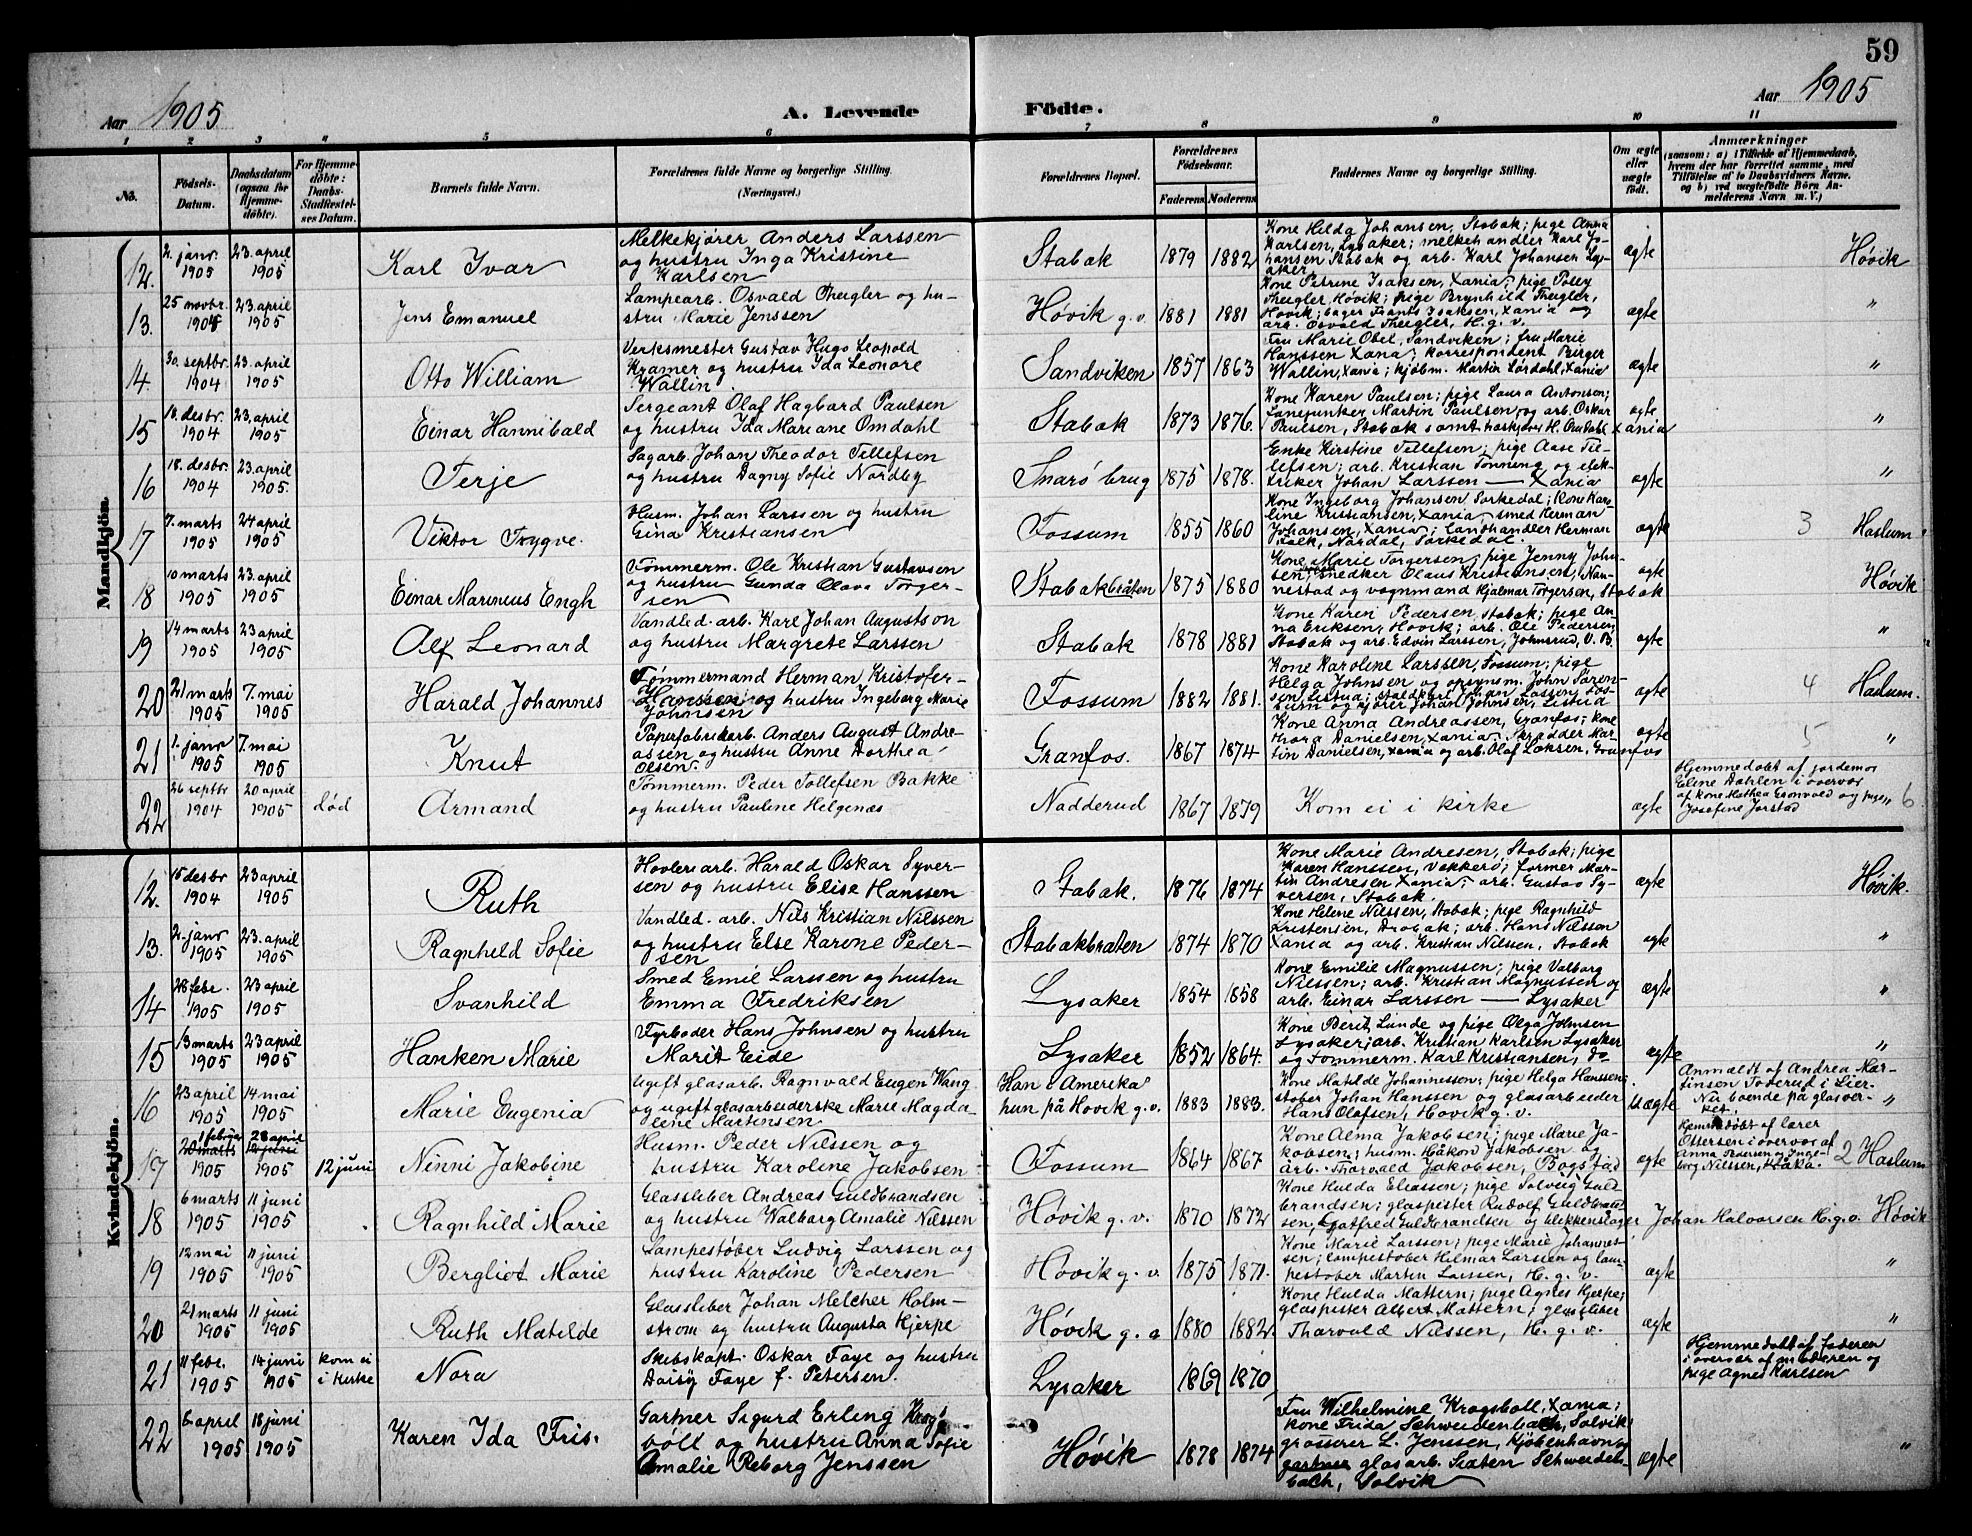 59
Aar 1905 A. Levende Födte. Aar 1905
1 2 3 4 5 6 7 8 9 10 11
No. Fødsels-Datum. Daabsdatum (ogsaa for Hjemme-døbte). For Hjemme-døbte: Daabs-Stadfæstel-ses Datum. Barnets fulde Navn. Forældrenes fulde Navne og borgerlige Stilling. (Næringsvei.) Forældrenes Bopæl. Forældrenes Fødselsaar. Faderens Moderens Faddernes Navne og borgerlige Stilling. Om ægte eller uægte født. Anmærkninger (saasom: a) i Tilfælde af Hjemmedaab, hvem der har forrettet samme, med Tilføielse af to Daabsvidners Navne, og b) ved uægtefødte Börn An-melderens Navn m. V.)
Mandkjön.
12. 2. janr 1905 23. april 1905 Karl Ivar Melkekjører Anders Larssen og hustru Inga Kristine Karlsen Stabæk 1879 1882 Kone Hilda Johansen, Stabæk; pige Anna Karlsen, Lysaker; melkehandler Karl Johansen Stabæk og arb. Karl Johansen Lysaker ægte Høvik
13. 25 novbr. 1904 23. april 1905 Jens Emanuel Lampearb. Osvald Theigler og hustru Marie Jenssen Høvik g. v. 1881 1881 Kone Petrine Isaksen, Xania; pige Polly Theigler, Høvik; pige Brynhild Theigler, Høvik; bager Frants Isaksen, Xania og arb. Osvald Theigler, H. g. v. ægte "
14. 30. septbr. 1904 23. april 1905 Otto William Verksmester Gustav Hugo Leopold Kramer og hustru Ida Leonore Wallin. Sandviken 1857 1863 Fru Marie Obel, Sandviken; fru Marie Hanssen Xania; korrespondent Birger Wallin, Xania; kjøbm. Martin Lørdahl, Xania ægte "
15 18. desbr. 1904 23. april 1905 Einar Hannibald Sergeant Olaf Hagbard Paulsen og hustru Ida Mariane Omdahl Stabæk 1873 1876. Kone Karen Paulsen; pige Laura Antonsen; Martin Paulsen og arb. Oskar Paulsen, Stabæk samt H. Omdahl Xania ægte "
16 18. desbr. 1904 23. april 1905. Terje Sagarb. Johan Theodor Tellefsen og hustru Dagny Sofie Nordby Snarø brug 1875 1878. Enke Kirstine Tellefsen; pige Aase Tellefsen; arb. Kristian Tønning og elektriker Johan Larssen — Xania ægte "
17 7. marts 1905 24 april 1905 Viktor Trygve. Husm. Johan Larssen og hustru Gina Kristiansen Fossum 1855 1860 Kone Ingeborg Johansen Sørkedal; Kone Karoline Kristiansen, Xania; smed Herman Johansen, Xania; Landhandler Herman ægte 3 Haslum
18 10 marts 1905 23. april 1905 Einar Marinius Engh Tømmerm. Ole Kristian Gustavsen og hustru Gunda Olava Torgersen Stabækbråten 1875 1880 Kone Marie Torgersen; pige Jenny Johnsen; snedker Olaus Kristiansen, Nannestad og vognmand Hjalmar Torgersen, Stabæk ægte Høvik
19 14 marts 1905 23 april 1905 Alf Leonard Vandled. arb. Karl Johan Augustson og hustru Margrete Larssen Stabæk 1878 1881 Kone Karen Pedersen, Stabæk; pige Anna Eriksen, Høvik; arb. Ole Pedersen Stabæk og arb. Edvin Larssen, Johnsrud, V. B. ægte "
20 21 marts 1905 7. mai 1905 Harald Johannes Tømmermand Herman Kristofer Hanssen og hustru Ingeborg Marie Johnsen Fossum 1882 1881. Kone Karoline Larssen, Fossum; pige Helga Johnsen og opsynsm. John Sørensen Listua; staldkarl Johan Lassen Fossum og kjører Johan Johnsen, Listua ægte 4 Haslum.
21 1. janr 1905 7. mai 1905 Knut Papirfabrikarb. Anders August Andreassen og hustru Anne Dorthea Olsen. Granfos. 1867 1874 Kone Anna Andreassen, Granfos; kone Thora Danielsen, Xania; Skrædder Martin Danielsen, Xania og arb. Olaf Løksen, Granfos ægte 5 "
22 26 septbr 1904 20 april 1905 død Armand Tømmerm. Peder Tollefsen Bakke og hustru Pauline Helgenæs Nadderud 1867 1879 Kom ei i kirke ægte Hjemmedøbt af jordemor Elene Dahlen i overvær af kone Mathea Grønvold og pige Josefine Jørstad " 6
Kvindekjön.
12. 15 desbr 1904 23 april 1905 Ruth Høvleriarb. Harald Oskar Syversen og hustru Elise Hanssen Stabæk. 1876 1874 Kone Marie Andresen, Stabæk; pige Karen Hanssen, Vækkerø; former Martin Andresen Xania; arb. Gustav Syversen, Stabæk. ægte Høvik.
13. 2. janr 1905 23. april 1905 Ragnhild Sofie Vandled. arb. Nils Kristian Nilssen og hustru Else Karine Pedersen Stabækbråten 1874 1870 Kone Helene Nilssen, Stabæk; pige Ragnhild Kristensen, Drøbak; arb. Hans Nilsson Xania og arb. Kristian Nilssen, Stabæk ægte "
14 28 febr. 1905 23 april 1905 Svanhild Smed Emil Larssen og hustru Emma Fredriksen Lysaker 1854 1858 Kone Emilie Magnussen; pige Valborg Nilssen; arb. Kristian Magnussen og arb. Einar Larssen — Lysaker ægte "
15 13 marts 1905 23 april 1905 Hanken Marie Fyrbøder Hans Johnsen og hustru Marit Eide Lysaker 1852 1864. Kone Berit Lunde og pige Olga Johnsen Lysaker; arb. Kristian Karlsen Lysaker og Tømmerm. Karl Kristiansen, do ægte "
16 23 april 1905 14 mai 1905 Marie Eugenia Ugift glasarb. Ragnvald Eugen Wang og ugift glasarbeiderske Marie Magdalene Martinsen Han i Amerika hun på Høvik g. v. 1883 1883. Kone Matilde Johannessen; pige Helga Hanssen; støber Johan Hanssen og glasarbeider Hans Olafsen, Høvik g. v. Uægte Anmeldt af Andrea Martinsen Toverud i Lier. Nu boende på glasverket. "
17 1 februar 20 marts 1905 23 april 12 juni 1905 12 juni Ninni Jakobine Husm. Peder Nilssen og hustru Karoline Jakobsen Fossum 1864 1867 Kone Alma Jakobsen; pige Marie Jakobsen; husm. Håkon Jakobsen og arb. Thorvald Jakobsen, Bogstad ægte Hjemmedøbt af lærer Ottersen i overvær af Anna Pedersen og Ingeborg Nilssen, 2 Haslum
18 6 marts 1905 11 juni 1905 Ragnhild Marie Glassliber Andreas Guldbrandsen og hustru Walborg Amalie Nilssen Høvik g. v. 1870 1872 Kone Hulda Eliassen; pige Solveig Guldbrandsen; glaspister Rudolf Guldbrandsen, Gotfred Guldbrandsen og blikkenslager Johan Halvorsen H. g. v. Høvik
19 12 mai 1905 11 juni 1905 Bergliot Marie Lampestøber Ludvig Larssen og hustru Karoline Pedersen Høvik g. v. 1875 1871. Kone Marie Larssen; pige Marie Johannessen; lampestøber Hilmar Larssen og lampestøber Martin Larssen, H. g. v. ægte "
20 21 marts 1905 11 juni 1905 Ruth Matilde Glassliber Johan Melcher Holmstrøm og hustru Augusta Hjerpe Høvik g. v 1880 1882. Kone Hulda Mattern; pige Agnes Hjerpe; glaspister Albert Mattern; glassliber Thorvald Nilssen, H. g. v. ægte "
21 11 febr. 1905 14 juni 1905 kom ei i kirke Nora Skibskapt. Oskar Faye og hustru Daisy Faye f. Petersen. Lysaker 1869 1870 Hjemmedøbt af faderen i overvær af moderen og pige Agnes Karlsen
22 6 april 1905 18 juni 1905 Karen Ida Friis. Gartner Sigurd Erling Krogsbøll og hustru Anna Sofie Amalie Reborg Jenssen Høvik 1878 1874 Fru Wilhelmine Krogsbøll, Xania; kone Frida Schweidenbach, Solvik; grosserer L. Jenssen, Kjøbenhavn og gartner glasarb. Schweidenbach, Solvik ægte "